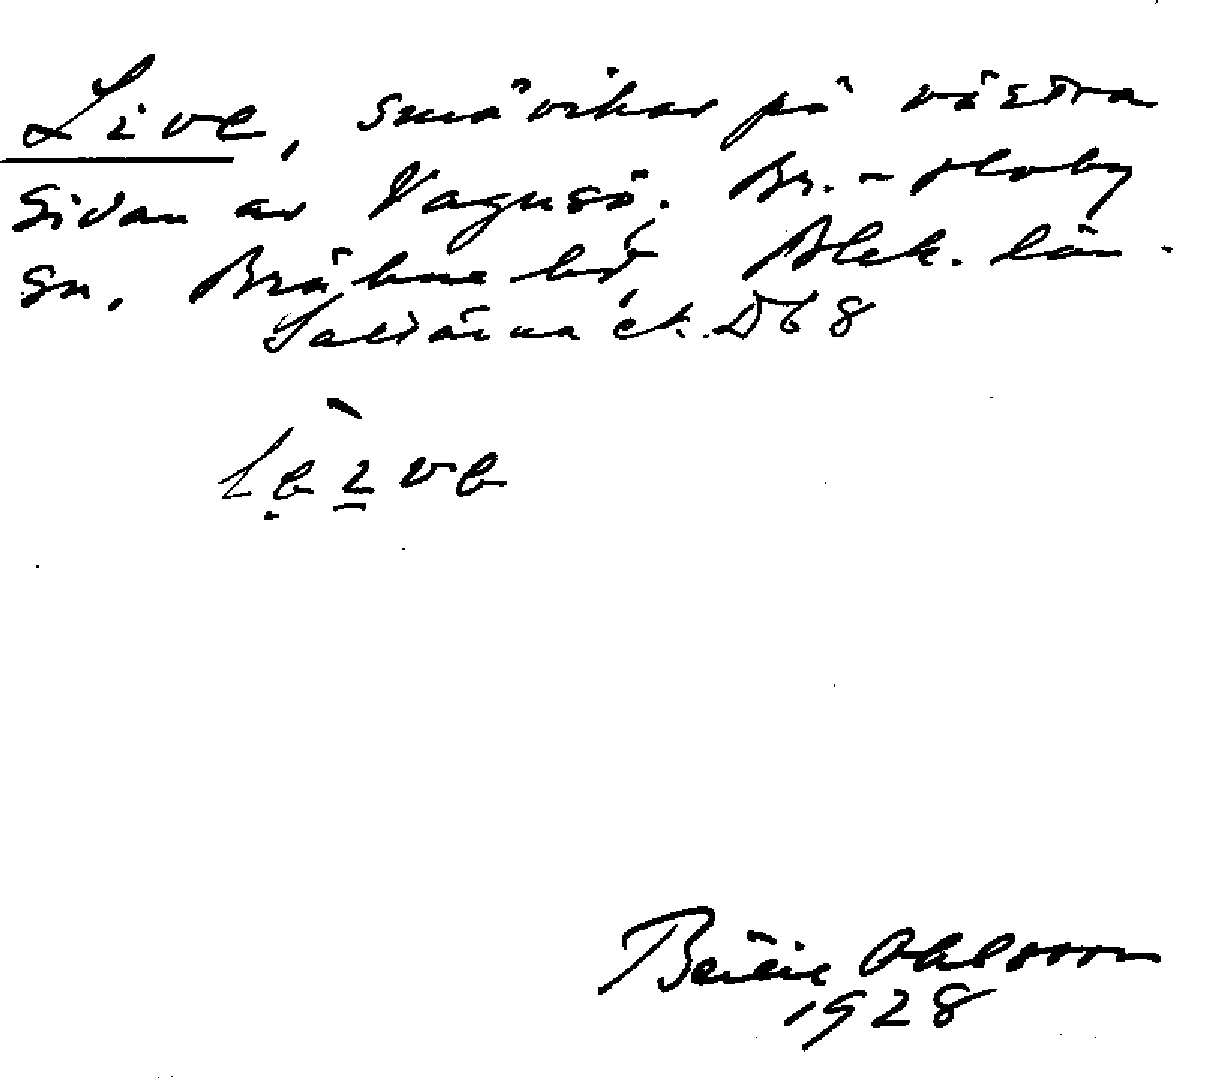 Live, småvikar på västra
sidan av Vagnsö. Br.-Hoby
sn, Bräkne hd, Blek. län.
Saltärna ek. D 6 8
Bertil Ohlsson
1928